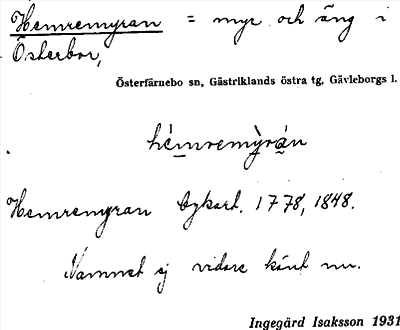 Hemremyran = myr och äng i
Österbor,
Österfärnebo sn, Gästriklands östra tg, Gävleborgs l.
hémremỳrán
Hemremyran Bykart. 1778, 1848.
Namnet ej vidare känt nu.
Ingegärd Isaksson 1931